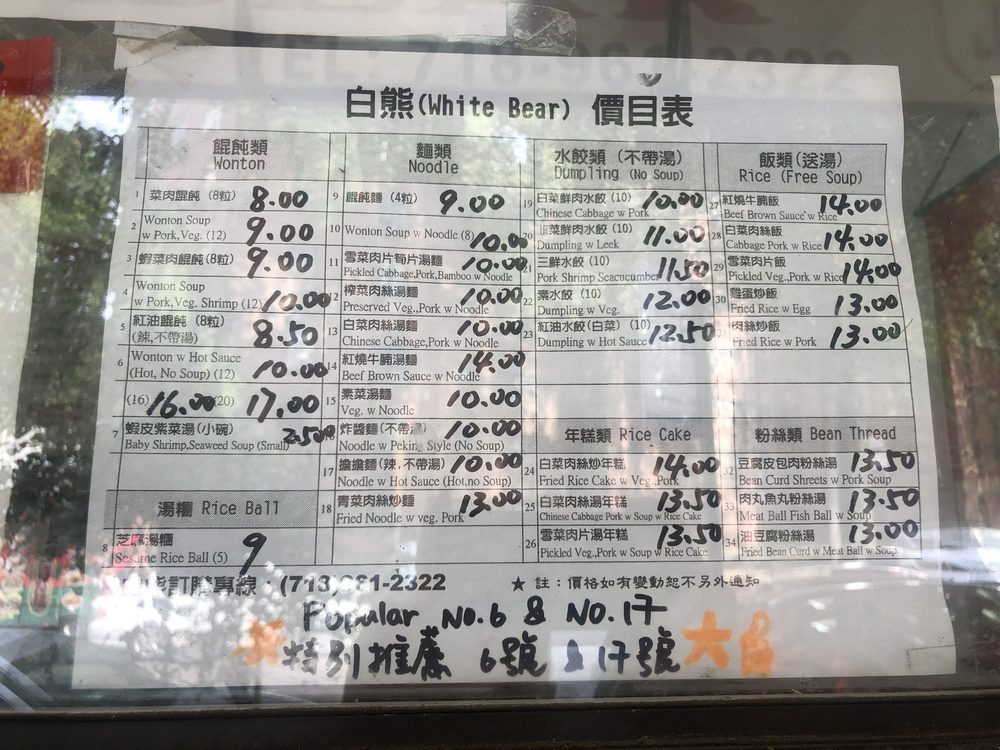 白熊(White Bear) 價目表
餛飩類
Wonton
1 菜肉餛飩 (8粒) 8.00
2 Wonton Soup
w Pork,Veg. (12) 9.00
3 蝦菜肉餛飩(8粒) 9.00
4 Wonton Soup
w Pork,Veg, Shrimp (12) 10.00
5 紅油餛飩 (8粒)
(辣,不帶湯) 8.50
6 Wonton w Hot Sauce
(Hot, No Soup) (12) 10.00
(16) 16.00 (20) 17.00
7 蝦皮紫菜湯(小碗)
Baby Shrimp,Seaweed Soup (Small) 2.50
湯糰 Rice Ball
8 芝麻湯糰
Sesame Rice Ball (5) 9
麵類
Noodle
9 餛飩麵 (4粒) 9.00
10 Wonton Soup w Noodle (8) 10.00
11 雪菜肉片筍片湯麵 10.00
Pickled Cabbage,Pork,Bamboo w Noodle
12 榨菜肉絲湯麵 10.00
Preserved Veg.,Pork w Noodle
13 白菜肉絲湯麵 10.00
Chinese Cabbage,Pork w Noodle
14 紅燒牛腩湯麵 14.00
Beef Brown Sauce w Noodle
15 素菜湯麵 10.00
Veg. w Noodle
炸醬麵(不帶湯) 10.00
Noodle w Peking Style (No Soup)
17 擔擔麵(辣,不帶湯) 10.00
Noodle w Hot Sauce (Hot,no Soup)
18 青菜肉絲炒麵 13.00
Fried Noodle w veg. Pork
水餃類 (不帶湯)
Dumpling (No Soup)
19 白菜鮮肉水餃 (10) 10.00
Chinese Cabbage w Pork
20 韮菜鮮肉水餃 (10) 11.00
Dumpling w Leek
21 三鮮水餃 (10) 11.50
Pork Shrimp Seacucumber
22 素水餃 (10) 12.00
Dumpling w Veg.
23 紅油水餃(白菜) (10) 12.50
Dumpling w Hot Sauce
年糕類 Rice Cake
24 白菜肉絲炒年糕 14.00
Fried Rice Cake w Veg,Pork
25 白菜肉絲湯年糕 13.50
Chinese Cabbage Pork w Soup w Rice Cake
26 雪菜肉片湯年糕 13.50
Pickled Veg.,Pork w Soup w Rice Cake
飯類(送湯)
Rice (Free Soup)
27 紅燒牛腩飯 14.00
Beef Brown Sauce w Rice
28 白菜肉絲飯 14.00
Cabbage Pork w Rice
29 雪菜肉片飯 14.00
Pickled Veg.,Pork w Rice
30 雞蛋炒飯 13.00
Fried Rice w Egg
肉絲炒飯 13.00
Fried Rice w Pork
粉絲類 Bean Thread
32 豆腐皮包肉粉絲湯 13.50
Bean Curd Shreets w Pork Soup
33 肉丸魚丸粉絲湯 13.50
Meat Ball Fish Ball w Soup
34 油豆腐粉絲湯 13.00
Fried Bean Curd w Meat Ball w Soup
訂購專線：(718)961-2322
★ 註：價格如有變動恕不另外通知
Popular No.6 & No.17
特別推薦 6號 & 17號